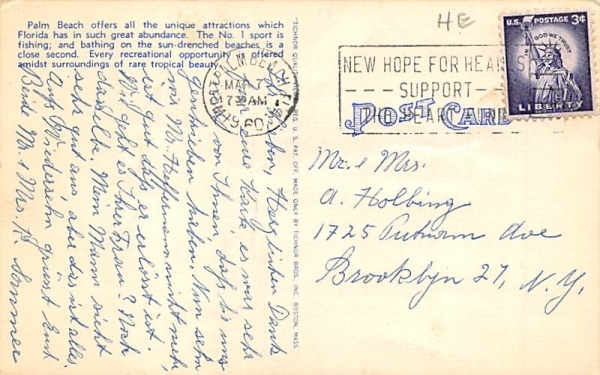 Palm Beach offers all the unique attractions which
Florida has in such great abundance. The No. 1 sport is
fishing; and bathing on the sun-drenched beaches is a
close second. Every recreational opportunity is offered
amidst surroundings of rare tropical beauty.
Herzlichen Dank
für eure Karte es war sehr
von Ihnen, daß sie uns
geschrieben haben. Nun sehn
wir Mr. Heffemann nicht mehr,
ist gut daß er erlöst ist.
Wie geht es Ihrer Frau? Noch
dasselbe. Mein Mann sieht
sehr gut aus, aber das ist alles.
Auf Wiedersehn grüsst Euch
Beide Mr. & Mrs. K. Sommer
BROS. INC. BOSTON, MASS.
HE
U.S. POSTAGE 3¢
IN GOD WE TRUST
LIBERTY
PALM BEACH
MAR
7 30 AM
60
NEW HOPE FOR HEARTS
SUPPORT
HEART
POST CARD
Mr. & Mrs.
A. Holbing
1725 Putnam Ave
Brooklyn 27, N.Y.